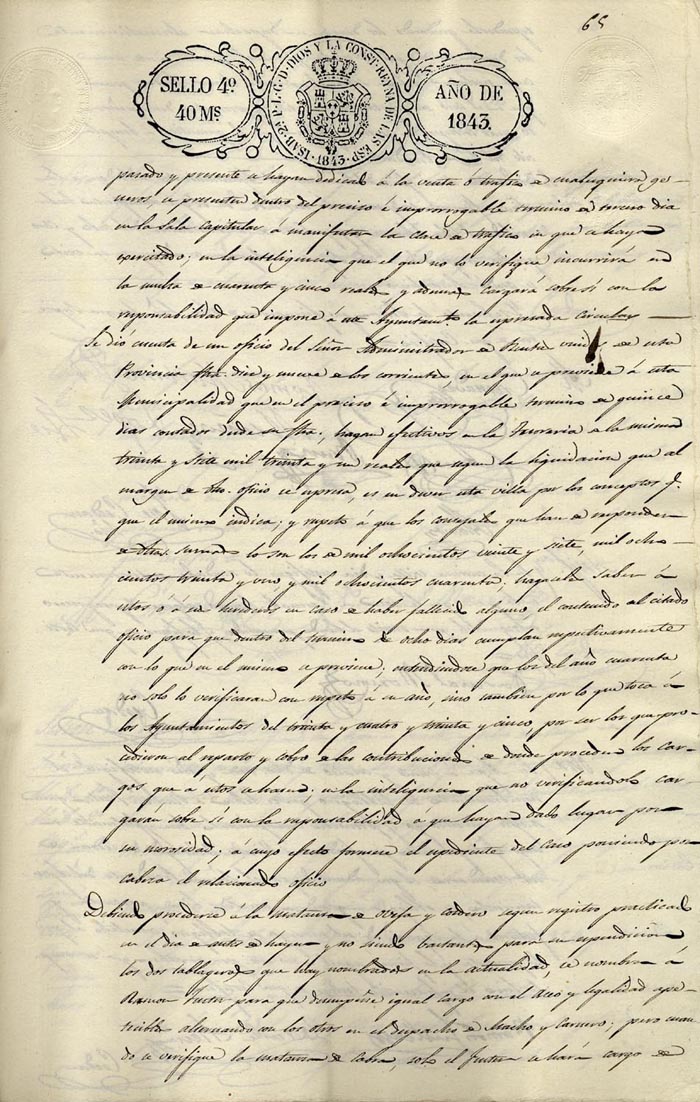 65
SELLO 4º
40 Ms
ISAB. 2ª P. L. G. D. DIOS Y LA CONST. REYNA DE LAS ESP.
1843.
AÑO DE
1843.
pasado y presente se hayan dedicado á la venta ó trafico de cualesquiera ge-
neros se presenten dentro del preciso é improrrogable termino de tercero dia
en la Sala Capitular á manifestar la clase de trafico en que se hayan
ejercitado; en la inteligencia que el que no lo verifique incurrirá en
la multa de cuarenta y cinco reales y ademas cargará sobre sí con la
responsabilidad que impone á este Ayuntamto. la espresada circular
Se dió cuenta de un oficio del Señor Administrador de Rentas unidas de esta
Provincia fha. diez y nueve de los corrientes, en el que se previene á esta
Municipalidad que en el preciso é improrrogable termino de quince
dias contados desde su fha., hagan efectivos en la Tesoreria de la misma
treinta y siete mil treinta y un reales que segun la liquidacion que al
margen de dho. oficio se espresa, es en deber esta villa por los conceptos q.
que el mismo indica; y respecto á que los concejales que han de responder
de dhas. sumas lo son los de mil ochocientos veinte y siete, mil ocho-
cientos treinta y uno y mil ochocientos cuarenta, hagase saber á
estos ó á sus herederos en caso de haber fallecido alguno el contenido del citado
oficio para que dentro del termino de ocho dias cumplan respectivamente
con lo que en el mismo se previene, entendiendose que los del año cuarenta
no solo lo verificaran con respecto á su año, sino tambien por lo que toca á
los Ayuntamientos del treinta y cuatro y treinta y cinco, por ser los que pro-
cedieron al reparto y cobro de las contribuciones de donde proceden los car-
gos que á estos se hacen; en la inteligencia que no verificandolo car-
garán sobre sí con la responsabilidad á que hayan dado lugar por
su morosidad; á cuyo efecto formese el espediente del caso poniendo por
cabeza el relacionado oficio
Debiendo procederse á la matanza de oveja y cordero segun registro practicado
en el dia de antes de hayer y no siendo bastantes para su espendicion
los dos tablageros que hay nombrados en la actualidad, se nombra a
Ramon para que desempeñe igual cargo con el aseo y legalidad ape-
tecibles alternando con los otros en el despacho de Macho y Carnero; pero cuan-
do se verifique la matanza de Cabra, solo el se hará cargo de